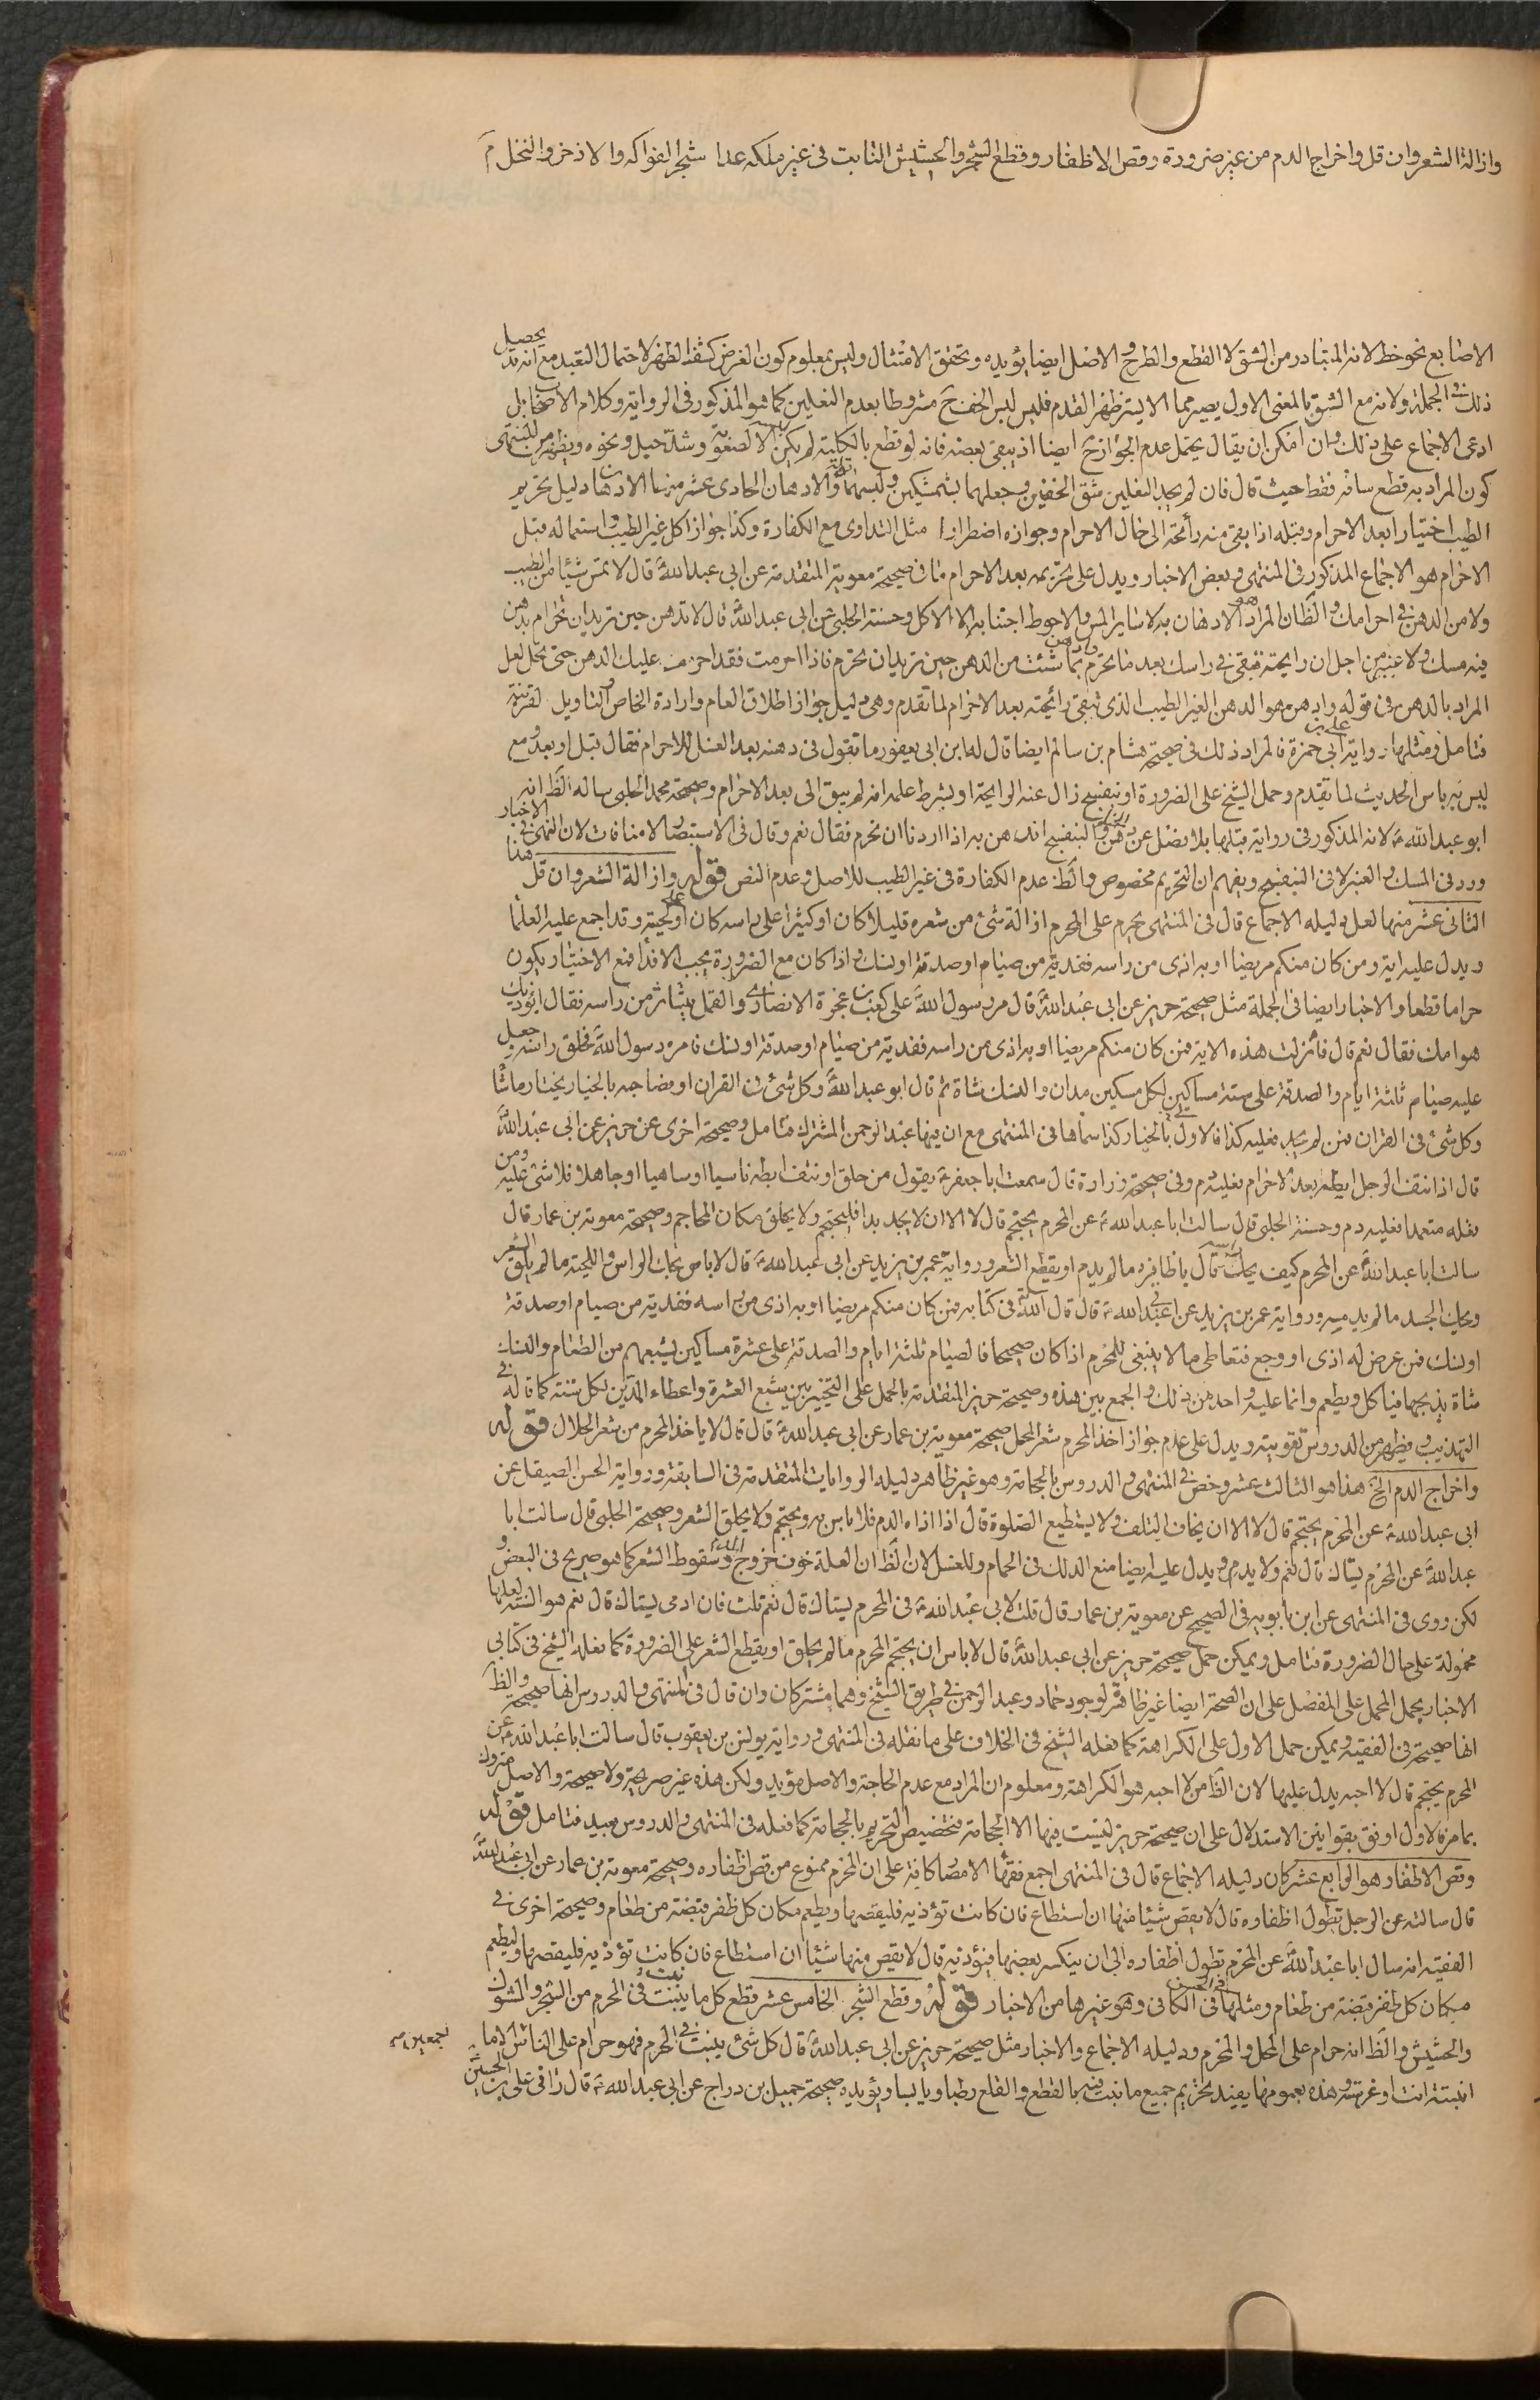 وازالة الشعر وان قل واخراج الدم من غير ضرورة وقص الاظفار وقطع الشجر والحشيش النابت فى غير ملكه عدا شجر الفواكه والاذخر والنخل
الاصابع نحو خط لانه المتبادر من الشق لا القطع والطرح والاصل ايضا يؤيده وتحقق الامتثال وليس بمعلوم كون الغرض كشف الظفر لاحتمال التعبد مع انه قد يحصيل
ذلك فى الجملة ولانه مع الشق بالمعنى الاول يصير مما لا يستر ظهر القدم فليس لبس الخف ح مشروطا بعدم النعلين كما هو المذكور فى الرواية وكلام الاصحاب بل
ادعى الاجماع على ذلك وان امكن ان يقال يحتمل عدم الجواز ح ايضا اذ يبقى بعضه فانه لو قطع بالكلية لم يكن الا لصعوبة وشدة حيل ونحوه ويظهر من المنتهى
كون المراد به قطع ساقه فقط حيث قال فان لم يجد النعلين شق الخفين وجعلهما بشمشكين ولبسهما قوله والادهان الحادى عشر منها الادهان دليل تحريم
الطيب اختيارا بعد الاحرام وقبله اذا بقى منه رائحة الى حال الاحرام وجوازه اضطرارا مثل التداوى مع الكفارة وكذا جواز اكل غير الطيب واستعماله قبل
الاحرام هو الاجماع المذكور فى المنتهى وبعض الاخبار ويدل على تحريمه بعد الاحرام ما فى صحيحة معوية المتقدمة عن ابى عبد الله ع قال لا تمس شيئا من الطيب
ولا من الدهن فى احرامك والظان المراد هو الادهان به لا ساير المس والاحوط اجتنابه الا الاكل وحسنة الحلبى عن ابى عبد الله ع قال لا تدهن حين تريد ان تحرم بدهن
فيه مسك ولا عنبر من اجل ان رايحته تبقى فى راسك بعد ما تحرم وادهن بما شئت من الدهن حين تريد ان تحرم فاذا احرمت فقد احرم عليك الدهن حتى تحل لعل
المراد بالدهن فى قوله وادهن هو الدهن الغير الطيب الذى تبقى رائحته بعد الاحرام لما تقدم وهى دليل جواز اطلاق العام وارادة الخاص والتاويل لقرينة
فتامل ومثلها رواية على بن ابى حمزة فالمراد ذلك فى صحيحة هشام بن سالم ايضا قال له ابن ابى يعفور ما تقول فى دهنه بعد الغسل للاحرام فقال قبل وبعد ومع
ليس به باس الحديث لما تقدم وحمل الشيخ على الضرورة او بنفسج زال عنه الرايحة او بشرط علمه انه لم يبق الى بعد الاحرام وصحيحة محمد الحلبى ساله الظ انه
ابو عبد الله ع لانه المذكور فى رواية قبلها بلا فصل عن دهن الحنا والبنفسج اندهن به اذا اردنا ان نحرم فقال نعم وقال فى الاستبصار لا منافات لان النهى فى الاخبار
ورد فى المسك والعنبر لا فى البنفسج ويفهم ان التحريم مخصوص والظ عدم الكفارة فى غير الطيب للاصل وعدم النص قوله وازالة الشعر وان قل هذا
الثانى عشر منها لعل دليله الاجماع قال فى المنتهى يحرم على المحرم ازالة شئ من شعره قليلا كان او كثيرا على راسه كان او على لحيته وقد اجمع عليه العلما
ويدل عليه اية ومن كان منكم مريضا او به اذى من راسه ففدية من صيام او صدقة او نسك واذا كان مع الضرورة يجب الافدا فمع الاختيار يكون
حراما قطعا والاخبار ايضا فى الجملة مثل صحيحة حريز عن ابى عبد الله ع قال مر رسول الله ص على كعب بن عجرة الانصارى والقمل يتناثر من راسه فقال اتوذيك
هوامك فقال نعم قال فانزلت هذه الاية فمن كان منكم مريضا او به اذى من راسه ففدية من صيام او صدقة او نسك فامره رسول الله ص فحلق راسه جعل
عليه صيام ثلثة ايام والصدقة على ستة مساكين لكل مسكين مدان والنسك شاة ثم قال ابو عبد الله ع وكل شئ فى القران او فصاحبه بالخيار يختار ما شا
وكل شئ فى القران فمن لم يجد فعليه كذا فالاولى بالخيار كذا سماها فى المنتهى مع ان فيها عبد الرحمن المشترك فتامل وصحيحة اخرى عن حريز عن ابى عبد الله ع
قال اذا نتف الرجل ابطه بعد الاحرام فعليه دم وفى صحيحة زرارة قال سمعت ابا جعفر ع يقول من حلق او نتف ابطه ناسيا او ساهيا او جاهلا فلا شئ عليه ومن
فعله متعمدا فعليه دم وحسنة الحلبى قال سالت ابا عبد الله ع عن المحرم يحتجم قال لا الا ان لا يجد بدا فليحتجم ولا يحلق مكان المحاجم وصحيحة معوية بن عمار قال
سالت ابا عبد الله ع عن المحرم كيف يحك راسه قال باظافيره ما لم يدم او يقطع الشعر ورواية عمر بن يزيد عن ابى عبد الله ع قال لا باس بحك الراس واللحية ما لم يلق الشعر
وبحك الجسد ما لم يدميه ورواية عمر بن يزيد عن ابى عبد الله ع قال قال الله فى كتابه فمن كان منكم مريضا او به اذى من راسه ففدية من صيام او صدقة
او نسك فمن عرض له اذى او وجع فتعاطى ما لا ينبغى للمحرم اذا كان صحيحا فالصيام ثلثة ايام والصدقة على عشرة مساكين يشبعهم من الطعام والنسك
شاة يذبحها فياكل ويطعم وانما عليه واحد من ذلك والجمع بين هذه وصحيحة حريز المتقدمة بالحمل على التخيير بين شبع العشرة واعطاء المدين لكل ستة كما قاله فى
التهذيب ويظهر من الدروس تقويته ويدل على عدم جواز اخذ المحرم شعر المحل صحيحة معوية بن عمار عن ابى عبد الله ع قال قال لا ياخذ المحرم من شعر الحلال قوله
واخراج الدم الخ هذا هو الثالث عشر وخص فى المنتهى والدروس بالحجامة وهو غير ظاهر دليله الروايات المتقدمة فى السابقة ورواية الحسن الصيقل عن
ابى عبد الله ع عن المحرم يحتجم قال لا الا ان يخاف التلف ولا يستطيع الصلوة قال اذا اذاه الدم فلا باس به ويحتجم ولا يحلق الشعر وصحيحة الحلبى قال سالت ابا
عبد الله ع عن المحرم يستاك قال نعم ولا يدم ويدل عليه ايضا منع الدلك فى الحمام وللغسل لان الظ ان العلة خوف خروج الدم وسقوط الشعر كما هو صريح فى البعض و
لكن روى فى المنتهى عن ابن بابويه فى الصحيح عن معوية بن عمار قال قلت لابى عبد الله ع فى المحرم يستاك قال نعم قلت فان ادمى يستاك قال نعم هو السنة لعلها
محمولة على حال الضرورة فتامل ويمكن حمل صحيحة حريز عن ابى عبد الله ع قال لا باس ان يحتجم المحرم ما لم يحلق او يقطع الشعر على الضرورة كما فعله الشيخ فى كتابى
الاخبار بحمل المجمل على المفصل على ان الصحة ايضا غير ظاهر لوجود حماد وعبد الرحمن فى طريق الشيخ وهما مشتركان وان قال فى المنتهى والدروس انها صحيحة والظ
انها صحيحة فى الفقيه ويمكن حمل الاول على الكراهة كما فعله الشيخ فى الخلاف على ما نقله فى المنتهى ورواية يونس بن يعقوب قال سالت ابا عبد الله ع عن
المحرم يحتجم قال لا احبه يدل عليها لان الظ من لا احبه هو الكراهة ومعلوم ان المراد مع عدم الحاجة والاصل مؤيد ولكن هذه غير صريحة ولا صحيحة والاصل متروك
بما مر فالاول اوفق بقوانين الاستدلال على ان صحيحة حريز ليست فيها الا الحجامة فتخصيص التحريم بالحجامة كما فعله فى المنتهى والدروس بعيد فتامل قوله
وقص الاظفار هو الرابع عشر كان دليله الاجماع قال فى المنتهى اجمع فقها الامصار كافة على ان المحرم ممنوع من قص اظفاره وصحيحة معوية بن عمار عن ابى عبد الله ع
قال سالته عن الرجل تطول اظفاره قال لا يقص شيئا منها ان استطاع فان كانت تؤذيه فليقصها ويطعم مكان كل ظفر قبضة من طعام وصحيحة اخرى فى
الفقيه انه سال ابا عبد الله ع عن المحرم تطول اظفاره الى ان ينكسر بعضها فيؤذيه قال لا يقص منها شيئا ان استطاع فان كانت تؤذيه فليقصها وليطعم
مكان كل ظفر قبضة من طعام ومثلها فى الحسن فى الكافى وهو غيرها من الاخبار قوله وقطع الشجر الخامس عشر قطع كل ما ينبت فى الحرم من الشجر والشوك
والحشيش والظ انه حرام على المحل والمحرم ودليله الاجماع والاخبار مثل صحيحة حريز عن ابى عبد الله ع قال كل شئ ينبت فى الحرم فهو حرام على الناس الا ما اجمعين
انبتته انت او غرسته وهذه بعمومها يفيد تحريم جميع ما نبت فيه بالقطع والقلع رطبا ويابسا ويؤيده صحيحة جميل بن دراج عن ابى عبد الله ع قال رانى على بن الحسين